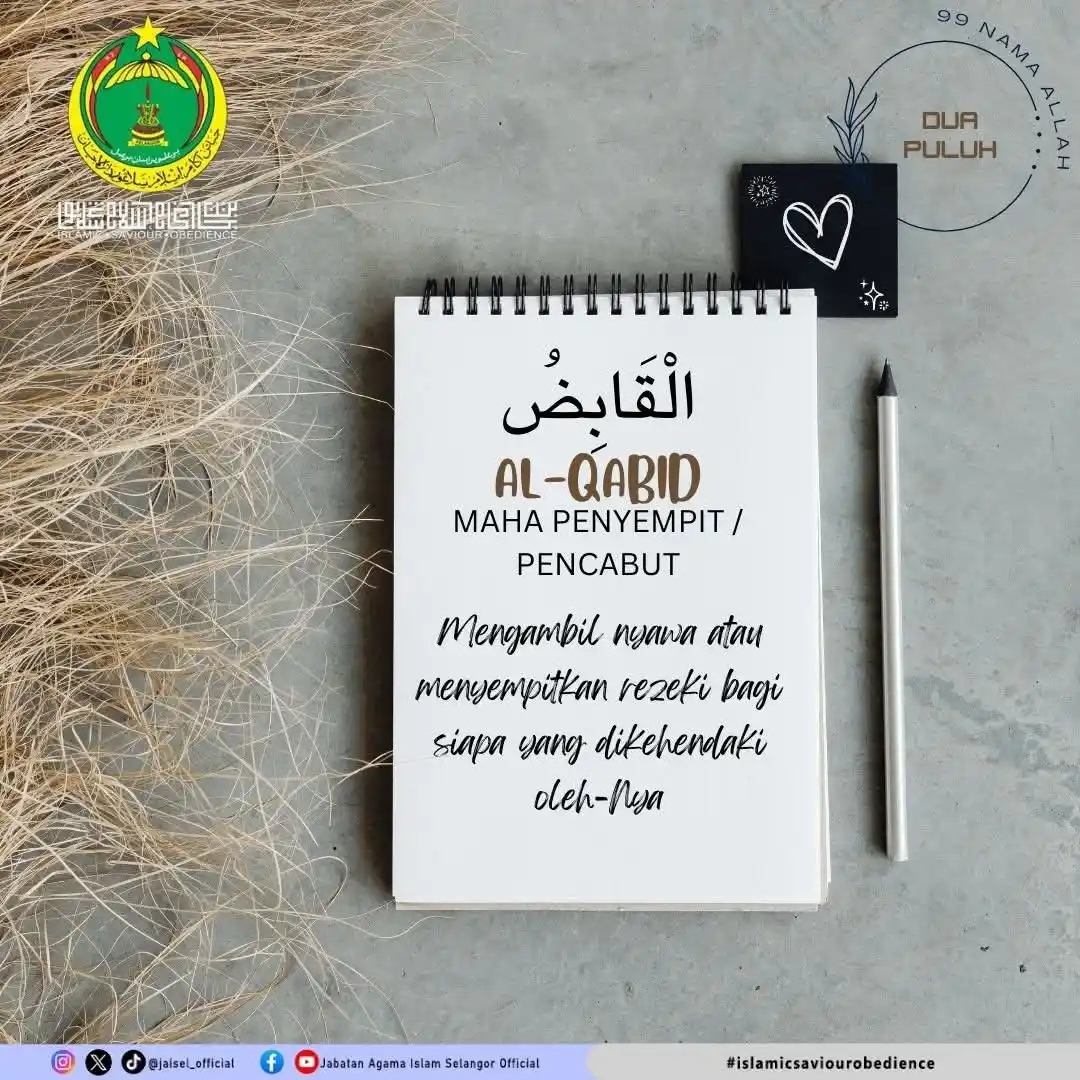 99 NAMA ALLAH
DUA
PULUH
ISLAMIC•SAVIOUR•OBEDIENCE
الْقَابِضُ
AL-QABID
MAHA PENYEMPIT /
PENCABUT
Mengambil nyawa atau
menyempitkan rezeki bagi
siapa yang dikehendaki
oleh-Nya
@jaisel_official
Jabatan Agama Islam Selangor Official
#islamicsaviourobedience